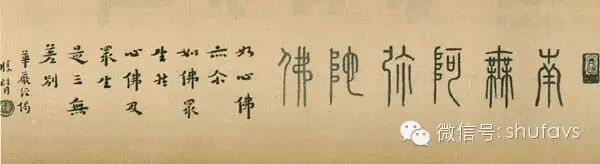 南無阿弥陀佛
如心佛
亦尔
如佛眾
生然
心佛及
眾生
是三無
差別
華嚴經偈
微信号: shufavs